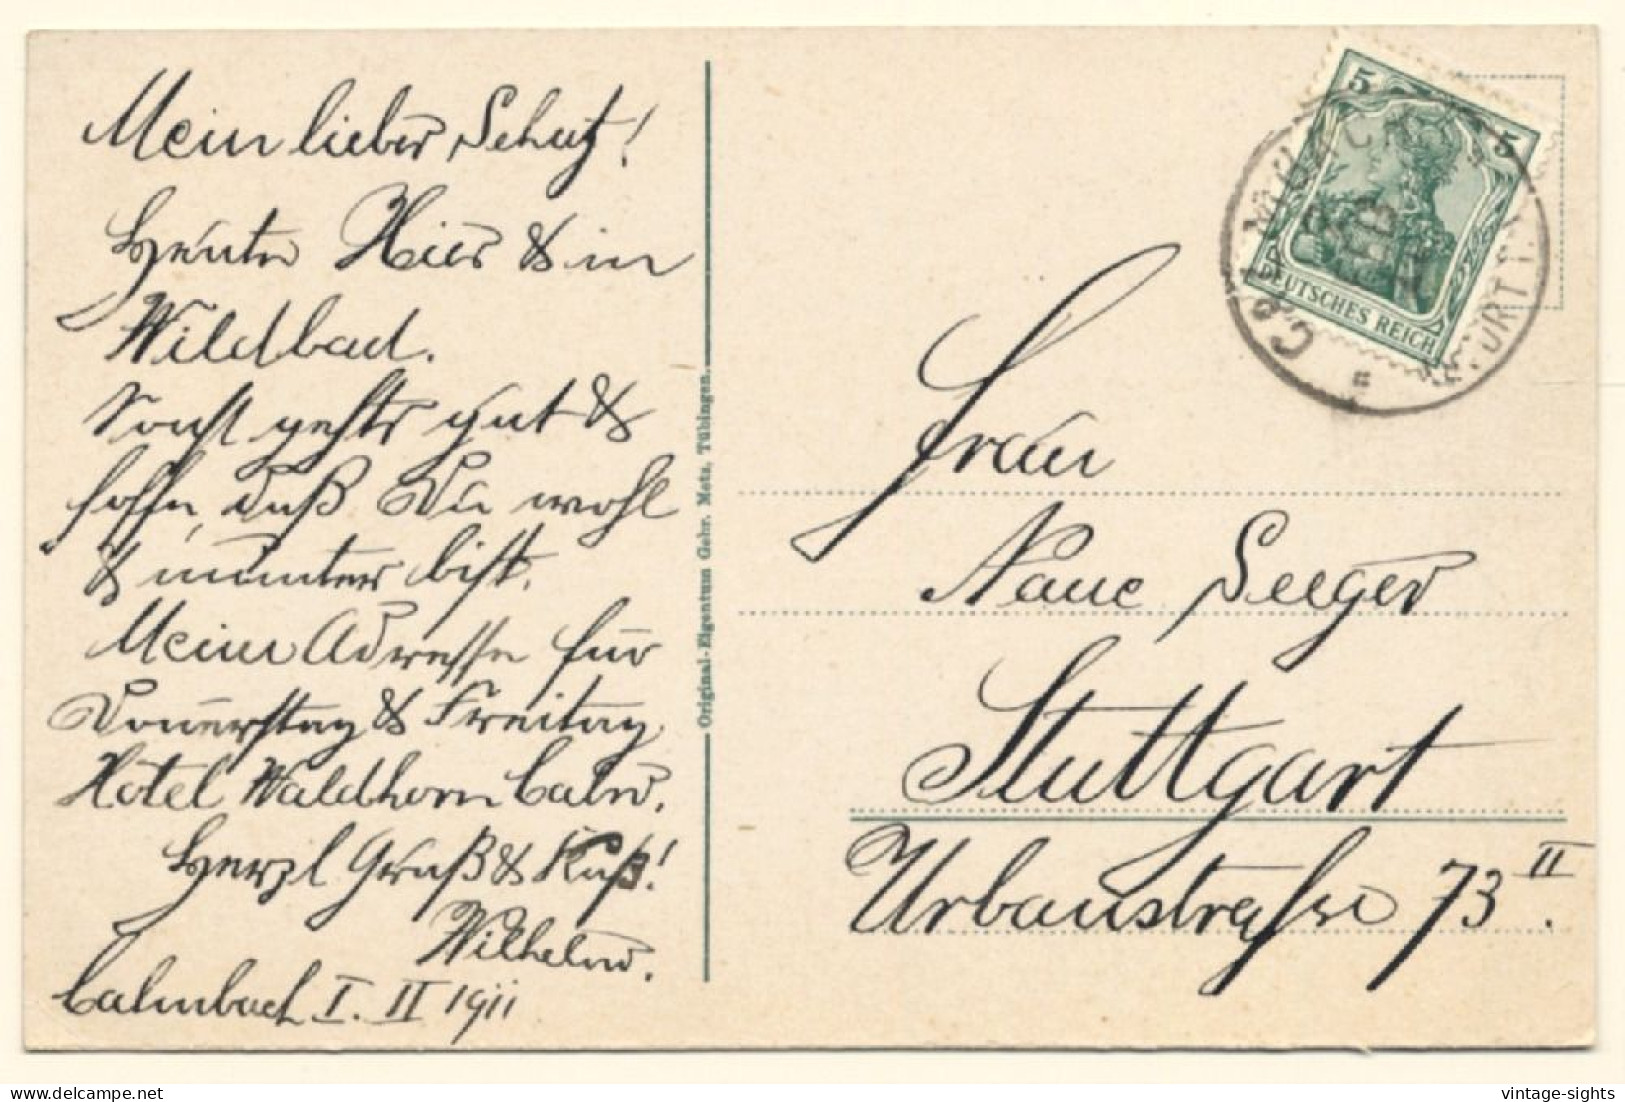 Mein lieber Schatz!
Heute Hier & in
Wildbad.
Sonst gehts gut &
hoffe, daß Du wohl
& munter bist.
Meine Adresse für
Donnerstag & Freitag
Hotel Waldhorn Calw.
Herzl Gruß & Kuß!
Wilhelm.
Calmbach I. II 1911
Original-Eigentum Gebr. Metz, Tübingen.
5
5
DEUTSCHES REICH
CALMBACH
Frau
Seeger
Stuttgart
Urbanstraße 73 II.
delcampe.net
vintage-sights